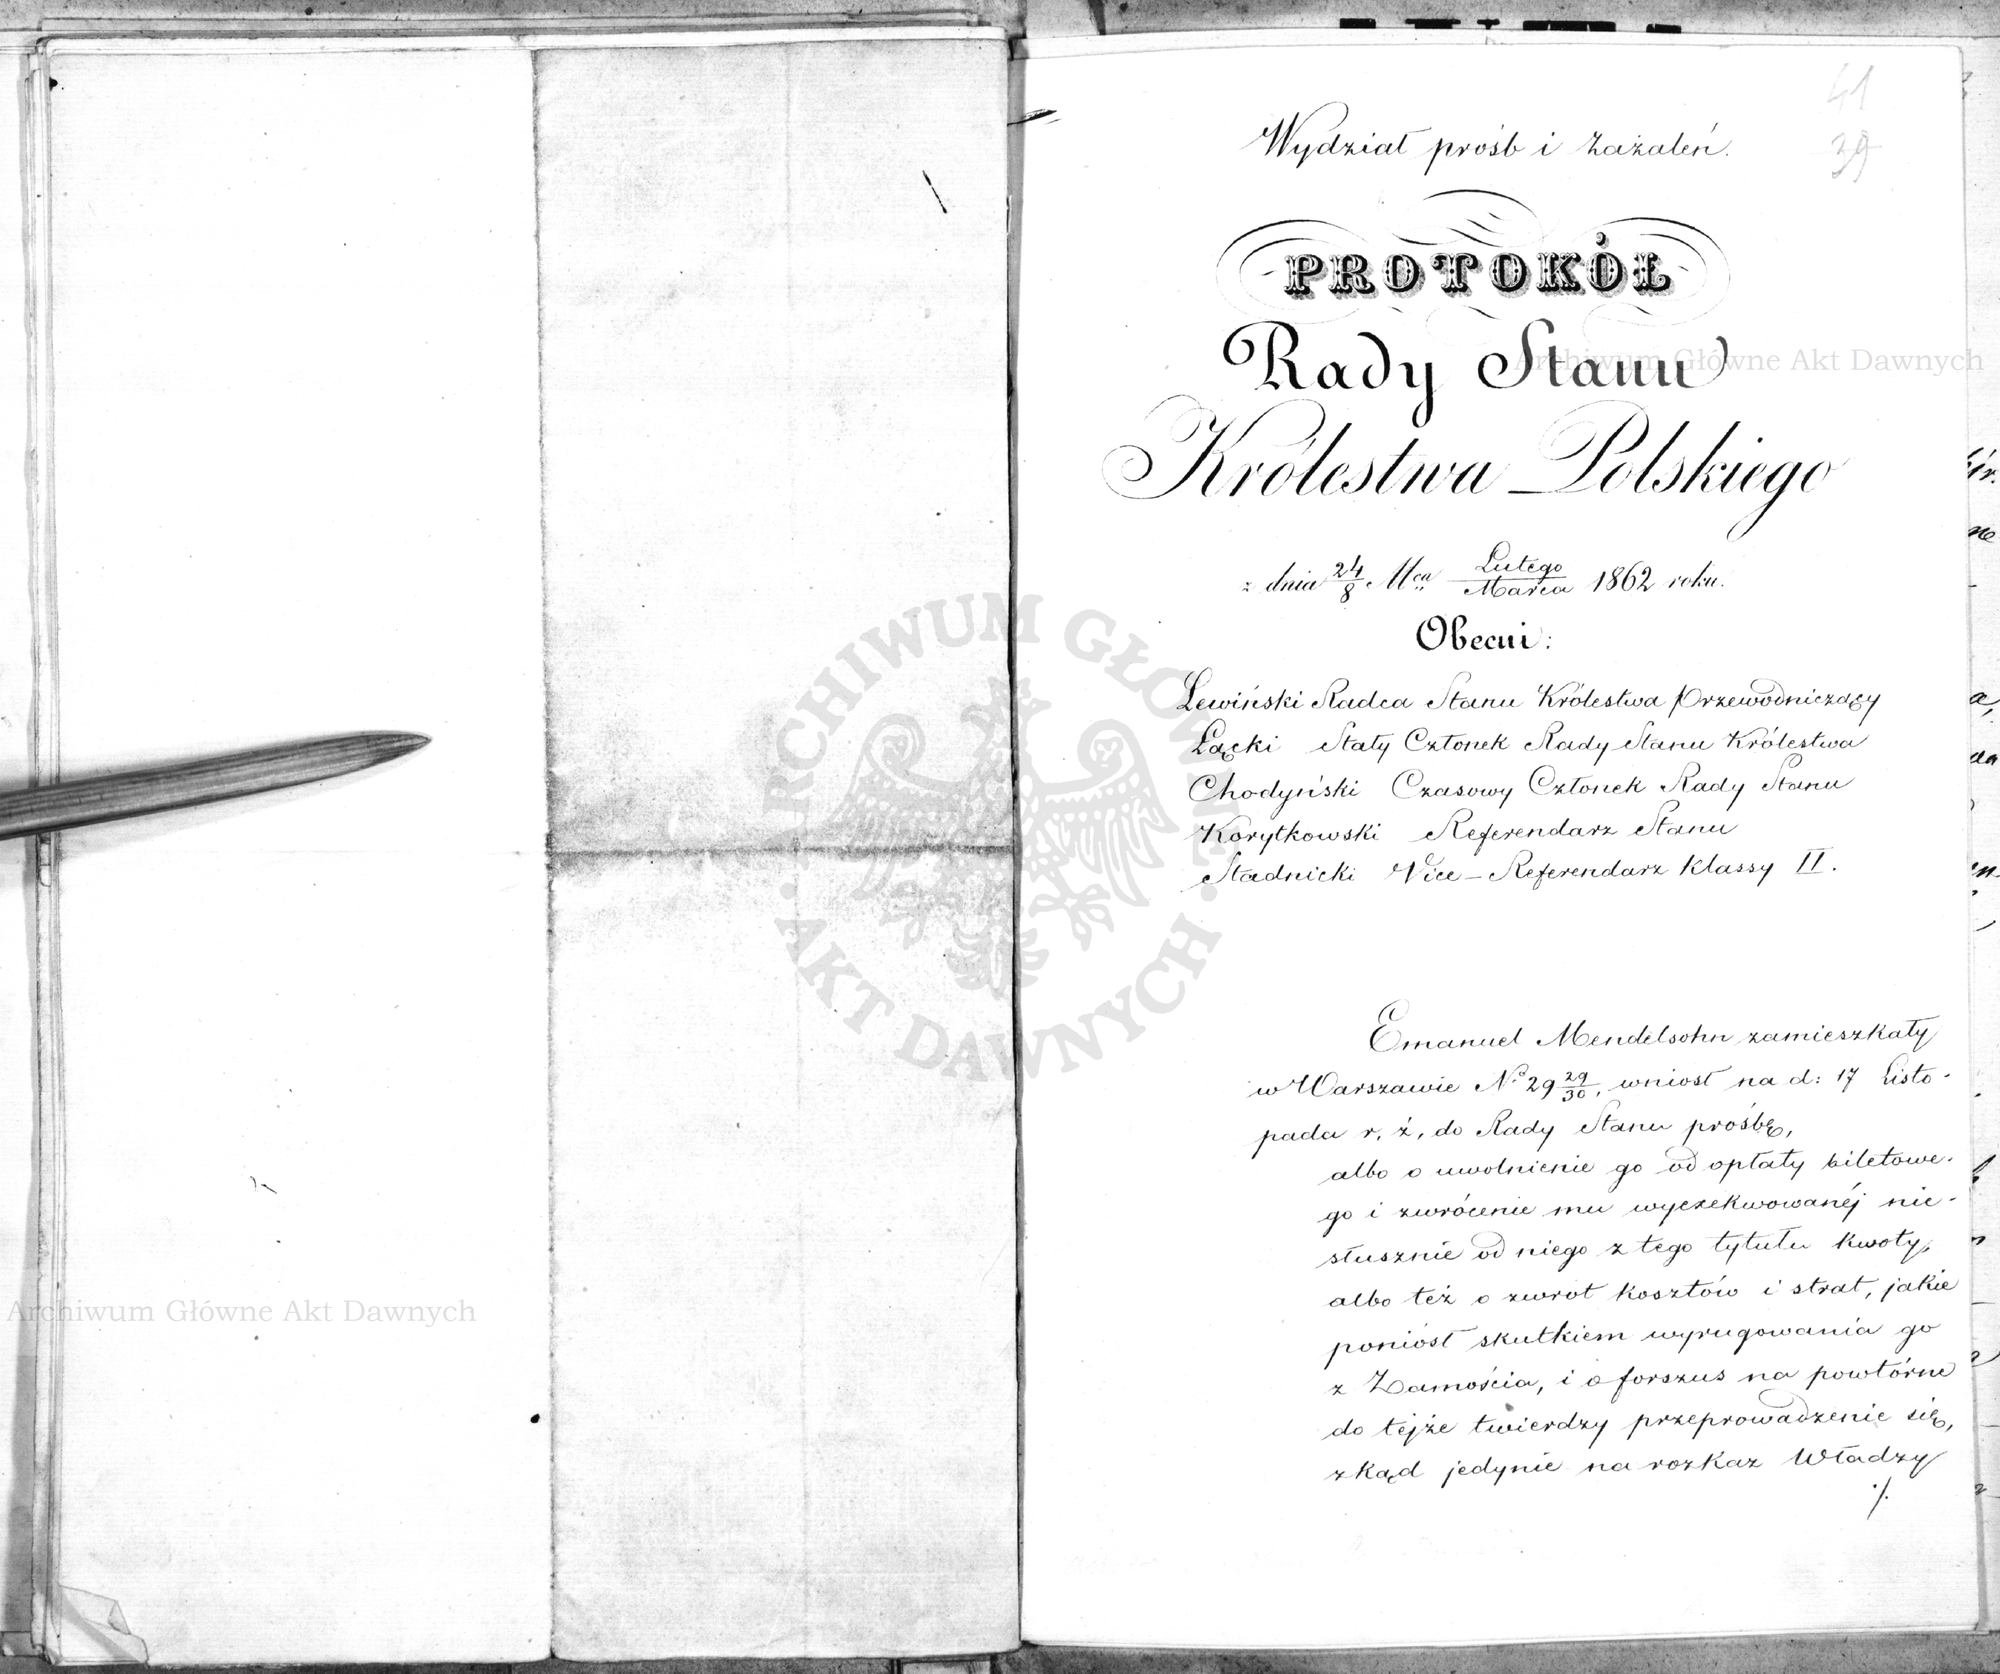 41
39
Wydział próśb i Zażaleń.
PROTOKÓŁ
Rady Stanu
Królestwa Polskiego
z dnia 24/8 Mca Lutego/Marca 1862 roku.
Obecni:
Lewiński Radca Stanu Królestwa Przewodniczący
Łącki Stały Członek Rady Stanu Królestwa
Chodyński Czasowy Członek Rady Stanu
Korytkowski Referendarz Stanu
Stadnicki Vice-Referendarz Klassy II.
Emanuel Mendelsohn zamieszkały
w Warszawie No 29 29/30, wniosł na d: 17 Listo-
pada r. z, do Rady Stanu prośbę,
albo o uwolnienie go od opłaty biletowe-
go i zwrócenie mu wyezekwowanéj nie-
słusznie od niego z tego tytułu kwoty,
albo też o zwrot kosztów i strat, jakie
poniósł skutkiem wyrugowania go
z Zamościa, i o forszus na powtórne
do tejże twierdzy przeprowadzenie się,
zkąd jedynie na rozkaz Władzy
./.
Archiwum Główne Akt Dawnych
Archiwum Główne Akt Dawnych
ARCHIWUM GŁÓWNE AKT DAWNYCH